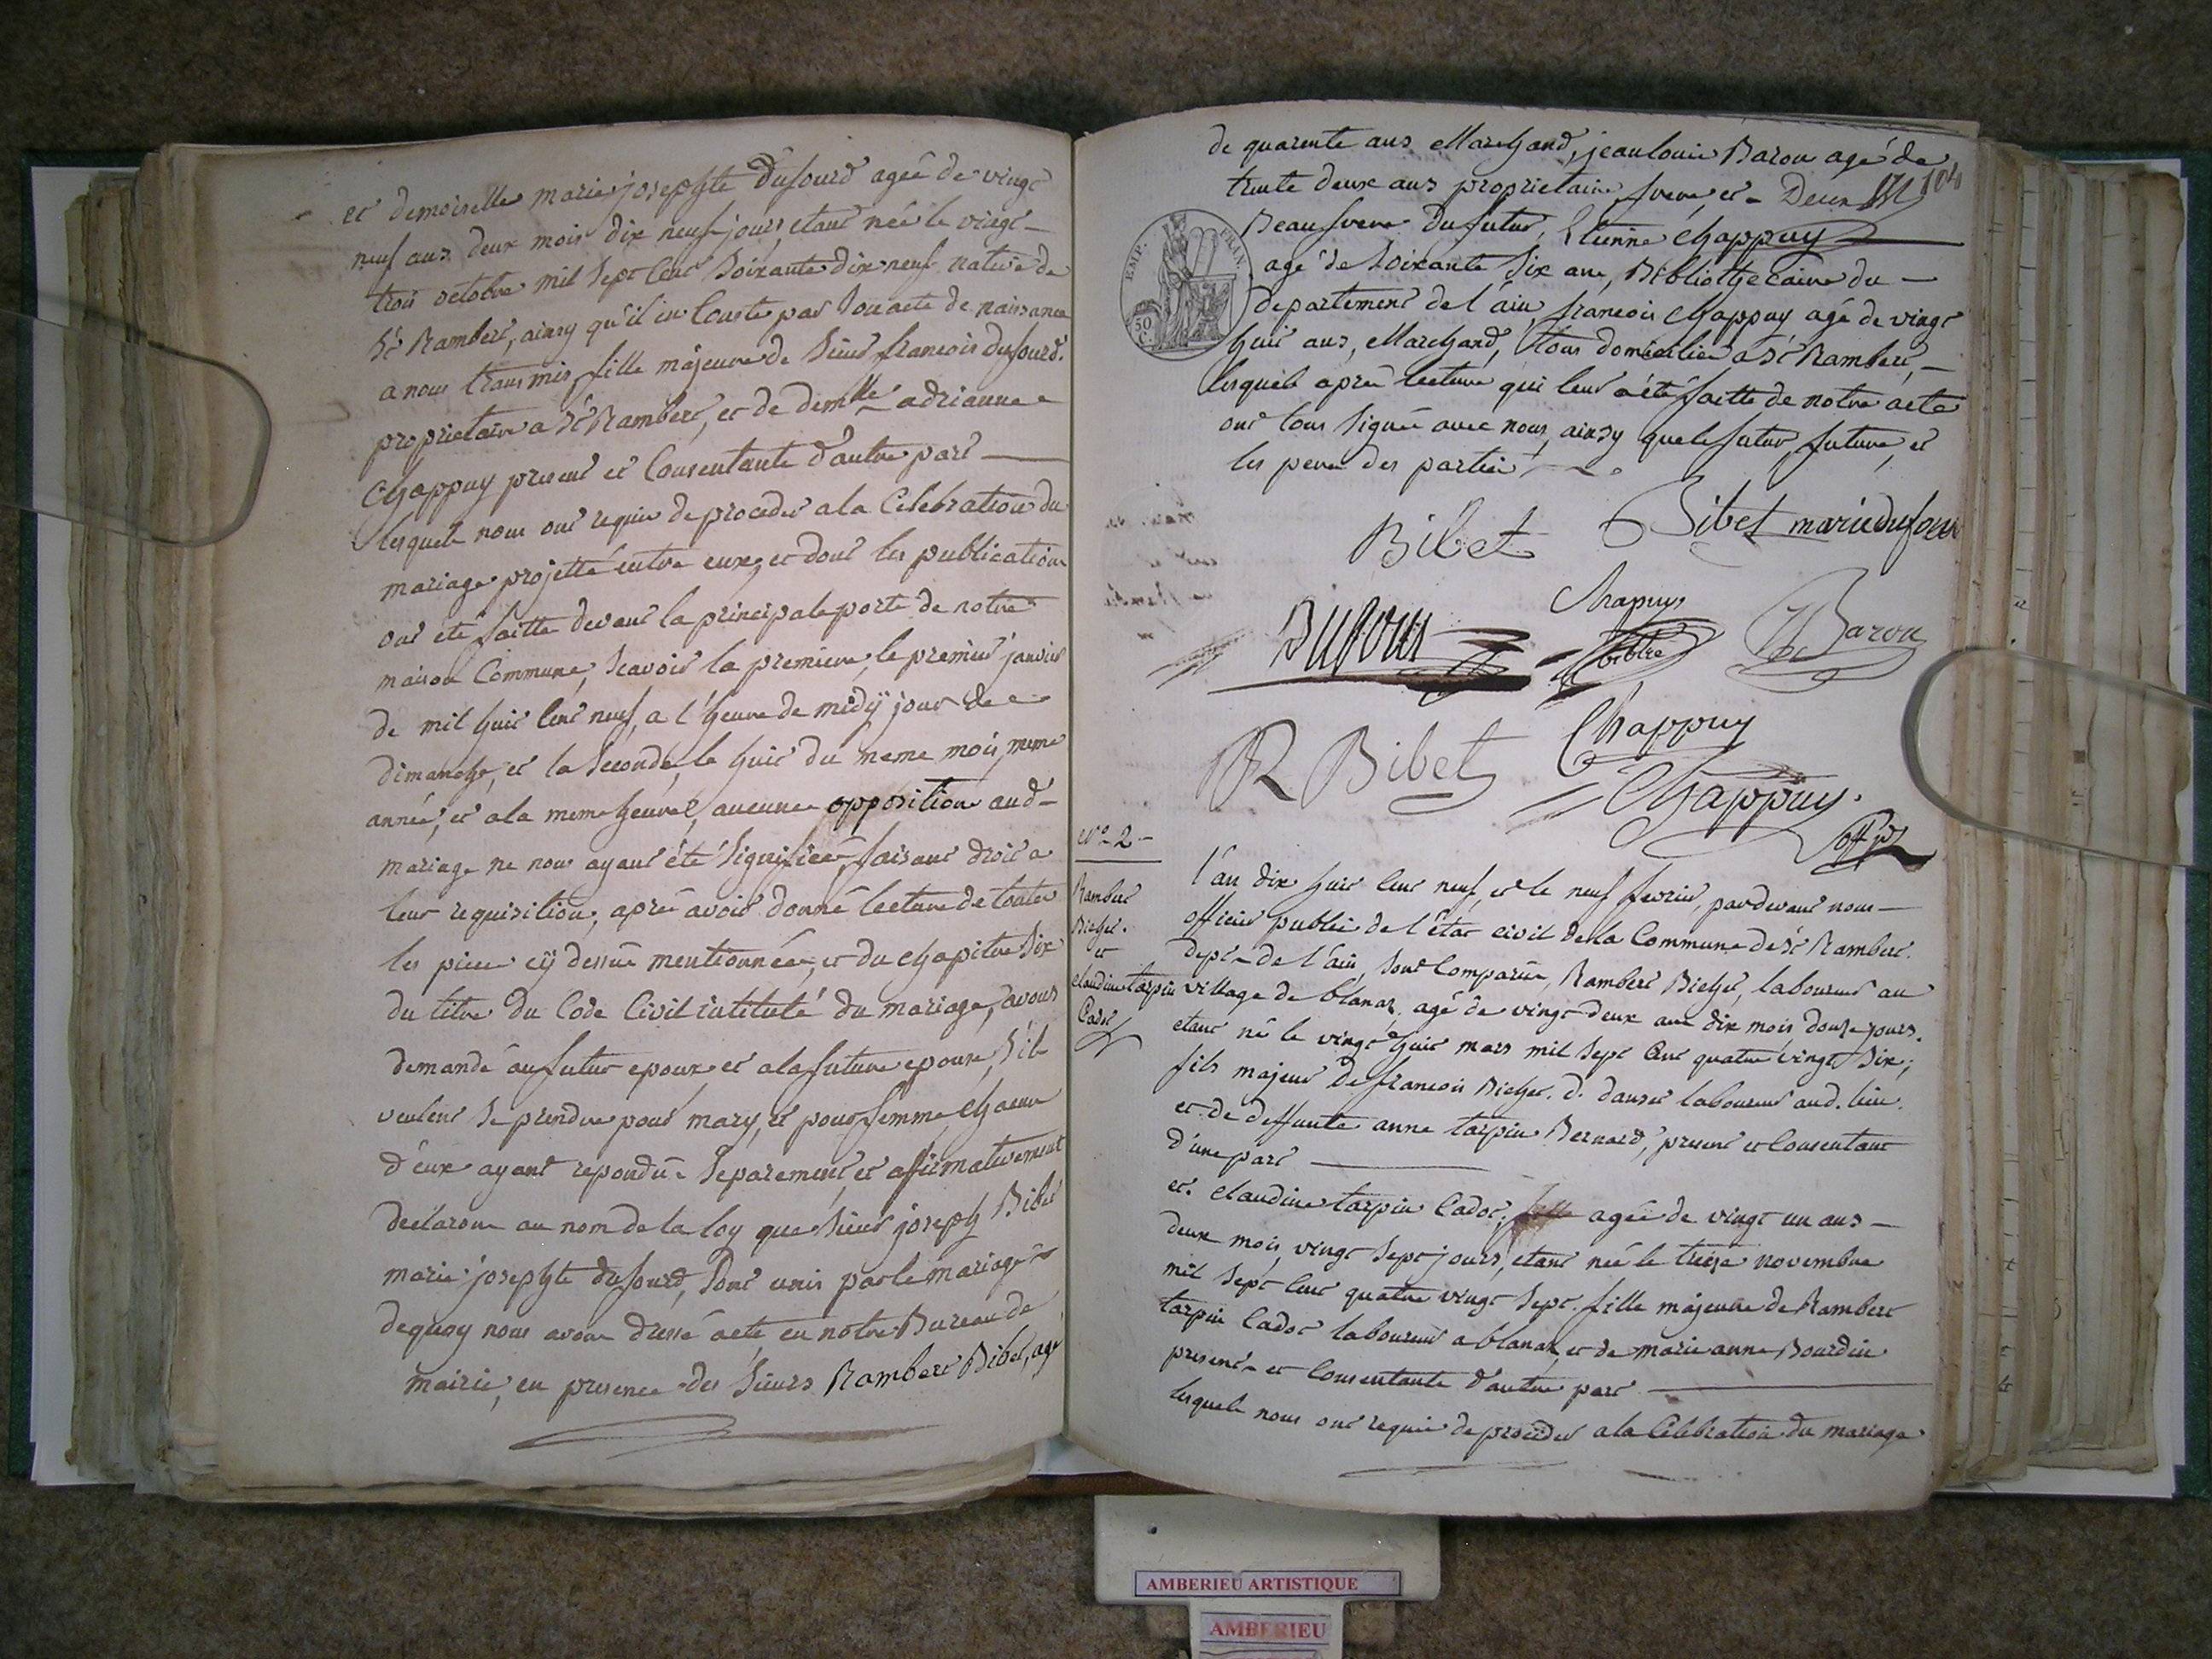 et demoiselle marie josephte Dufourd agée de vingt
neuf ans deux mois dix neuf jours, etant née le vingt
trois octobre mil sept cent soixante dix neuf native de
St Rambert, ainsy qu'il en Conste par son acte de naissance
a nous transmis, fille majeure de sieur francois dufourd.
proprietaire a St Rambert, et de demlle adrianne
Chappuy present et Consentante d'autre part
lesquels nous ont requis de proceder a la Celebration du
mariage projetté entre eux, et dont les publications
ont été faitte devant la principale porte de notre
maison Commune, scavoir la premiere, le premier janvier
de mil huit cent neuf, a l'heure de midÿ jour de
dimanche, et la seconde, le huit du meme mois, meme
année, et a la meme heure, aucune opposition aud
mariage ne nous ayant été signifiée, faisant droit a
leur requisition, après avoir donné lecture de toutes
les piece cÿ dessus mentionnée, et du chapitre six
du titre du Code Civil intitulé du mariage, avons
demandé au futur epoux et a la future epouse, s'ils
veulent se prendre pour mary, et pour femme, chacun
d'eux ayant repondu separement, et affirmativement
declarons au nom de la loy que sieur joseph Bibet
marie josephte dufourd, sont unis par le mariage
dequoy nous avons dressé acte, en notre Bureau de
mairie, en presence des sieurs Rambert Bibet, agé
de quarente ans Marchand, jean louis Baron agé de
trente deux ans proprietaire, frere, et Deux
104
EMP. FRAN.
50 C.
Beaufrere du futur, Etienne Chappuy
agé de soixante six ans, Bibliothecaire du
departement de l'ain, francois Chappuy agé de vingt
huit ans, Marchand, tous domicilié a St Rambert,
lesquels après lecture qui leur a été faitte de notre acte
ont tous signée avec nous, ainsy que le futur, future, et
les peres des parties
Bibet Bibet marie dufour
Dufour Chapuys biblre Baron
R Bibet Chappuy
Chappuy.
off. p.
No 2
Rambert
Bichet.
et
Claudine tarpin
Cadot
l'an dix huit cent neuf, et le neuf fevrier, pardevant nous
officier public de l'état civil de la Commune de St Rambert.
dept de l'ain, sont Comparus, Rambert Bichet, laboureur au
village de blanaz, agé de vingt deux ans dix mois douze jours.
etant né le vingt huit mars mil sept cent quatre vingt six,
fils majeur de francois Bichet. d. danset laboureur aud. lieu.
et de deffunte anne tarpin Bernard, present et Consentant
d'une part
et. Claudine tarpin Cadot, agée de vingt un ans
deux mois, vingt sept jours, etant née le treize novembre
mil sept cent quatre vingt sept. fille majeure de Rambert
tarpin Cadot laboureur a blanaz, et de marie anne Bourdin
present et Consentante d'autre part
lesquels nous ont requis de proceder a la Celebration du mariage
AMBERIEU ARTISTIQUE
AMBERIEU